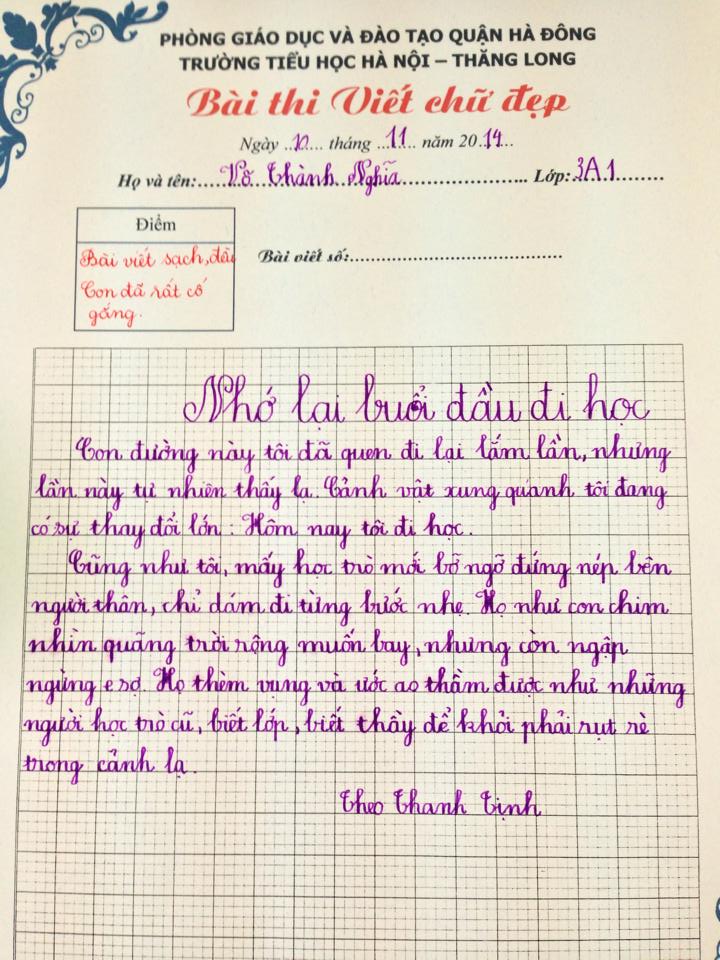 PHÒNG GIÁO DỤC VÀ ĐÀO TẠO QUẬN HÀ ĐÔNG
TRƯỜNG TIỂU HỌC HÀ NỘI – THĂNG LONG
Bài thi Viết chữ đẹp
Ngày ..10.... tháng ..11.... năm 20.14...
Họ và tên:....Võ Thành Nghĩa.... Lớp:.3A1....
Điểm
Bài viết sạch,
Con đã rất cố
gắng.
Bài viết số:....
Nhớ lại buổi đầu đi học
Con đường này tôi đã quen đi lại lắm lần, nhưng
lần này tự nhiên thấy lạ. Cảnh vật xung quanh tôi đang
có sự thay đổi lớn : Hôm nay tôi đi học.
Cũng như tôi, mấy học trò mới bỡ ngỡ đứng nép bên
người thân, chỉ dám đi từng bước nhẹ. Họ như con chim
nhìn quãng trời rộng muốn bay, nhưng còn ngập
ngừng e sợ. Họ thèm vụng và ước ao thầm được như những
người học trò cũ, biết lớp, biết thầy để khỏi phải rụt rè
trong cảnh lạ.
Theo Thanh Tịnh